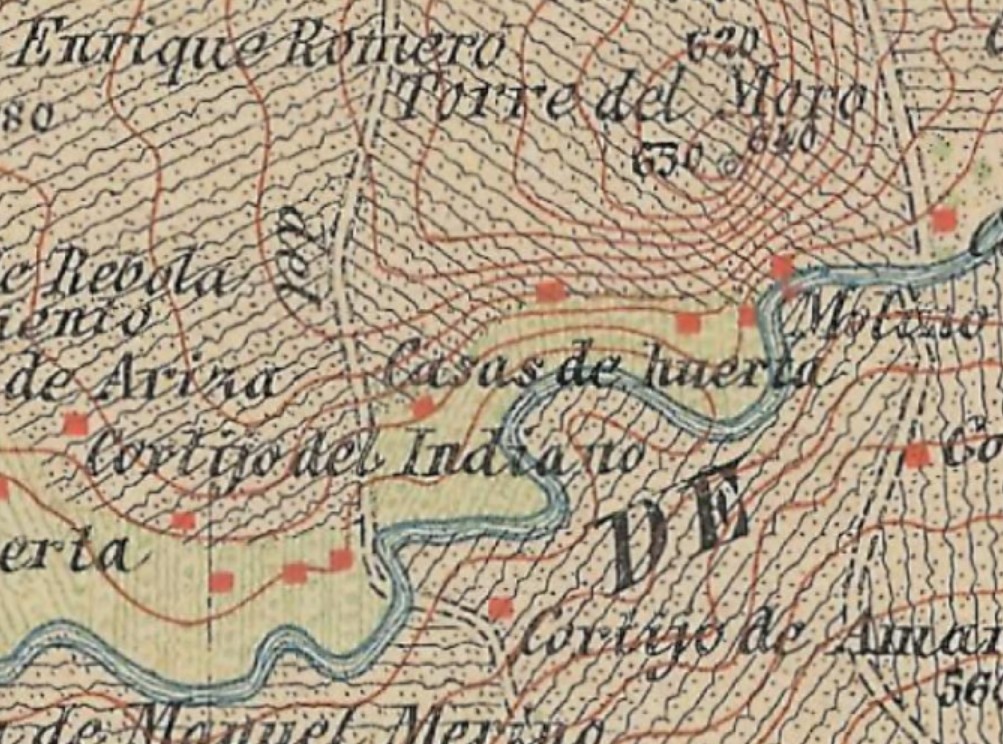 Enrique Romero
620
Torre del Moro
80
630
640
del
de Rebola
iento
Molino
de Ariza
Casas de huerta
Cortijo del Indiano
Cº
DE
erta
Cortijo de Amar
560
de Manuel Merino